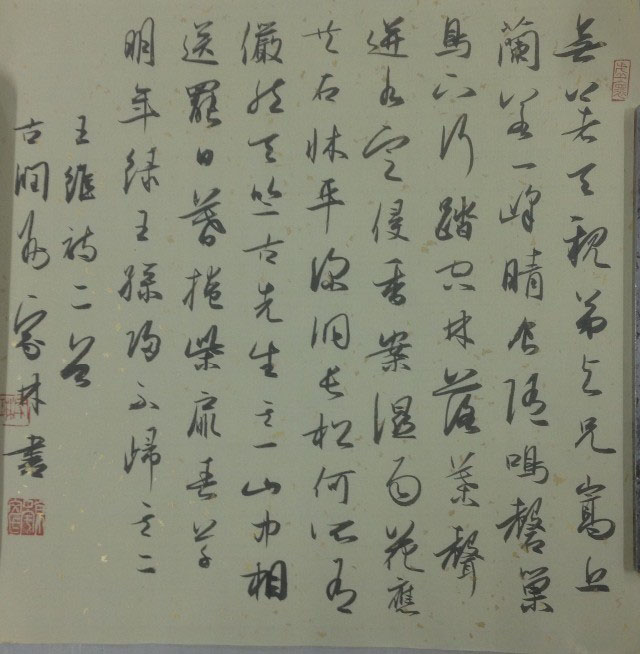 無著天親弟与兄嵩丘
蘭若一峰晴食隨鳴磬巢
鳥下行踏空林落葉聲
迸水定侵香案濕雨花應
共石牀平深洞長松何所有
儼然天竺古先生其一山中相
送罷日暮掩柴扉春草
明年綠王孫歸不歸其二
王維詩二首
古潤州林書